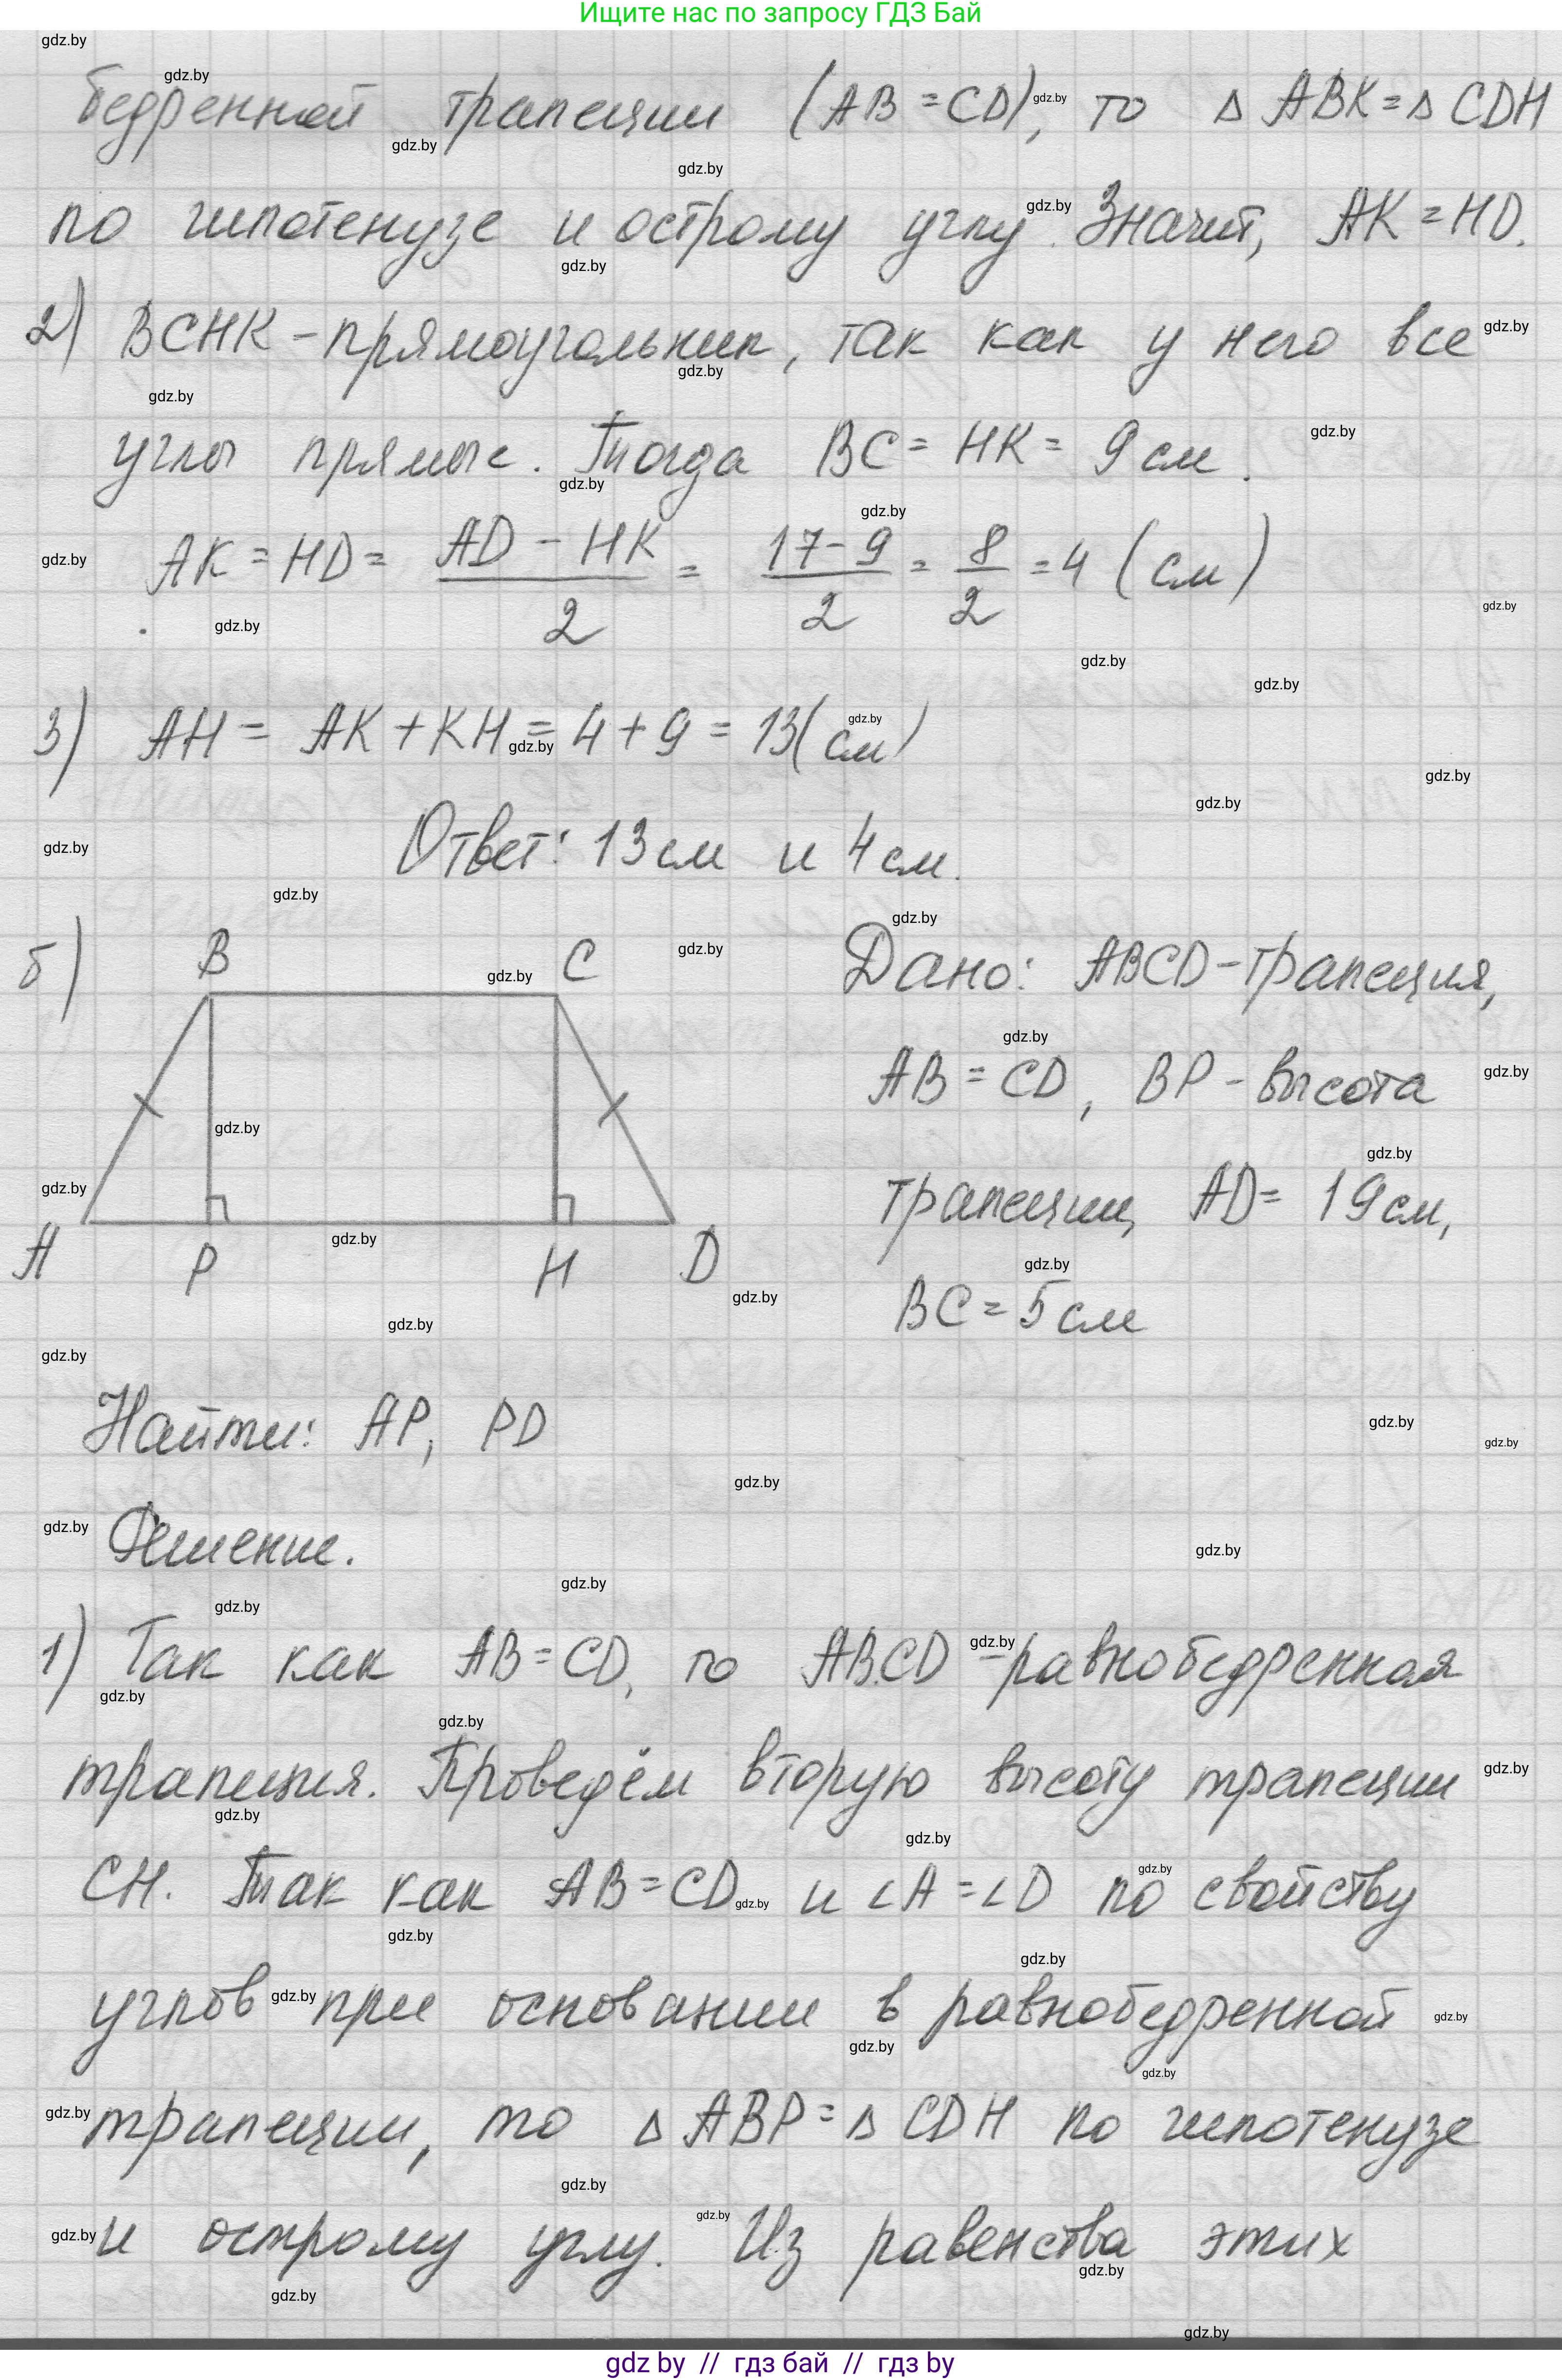 Ищите нас по запросу ГДЗ Бай
бедренной трапеции (AB = CD), то Δ ABK = Δ CDH
по гипотенузе и острому углу. Значит, AK = HD.
2) BCHK - прямоугольник, так как у него все
углы прямые. Тогда BC = HK = 9 см.
AK = HD = (AD - HK)/2 = (17 - 9)/2 = 8/2 = 4 (см)
3) AH = AK + KH = 4 + 9 = 13 (см)
Ответ: 13 см и 4 см.
б) B C
A P H D
Дано: ABCD - трапеция,
AB = CD, BP - высота
трапеции, AD = 19 см,
BC = 5 см
Найти: AP, PD
Решение.
1) Так как AB = CD, то ABCD - равнобедренная
трапеция. Проведём вторую высоту трапеции
CH. Так как AB = CD и ∠A = ∠D по свойству
углов при основании в равнобедренной
трапеции, то Δ ABP = Δ CDH по гипотенузе
и острому углу. Из равенства этих
gdz by // гдз бай // гдз by